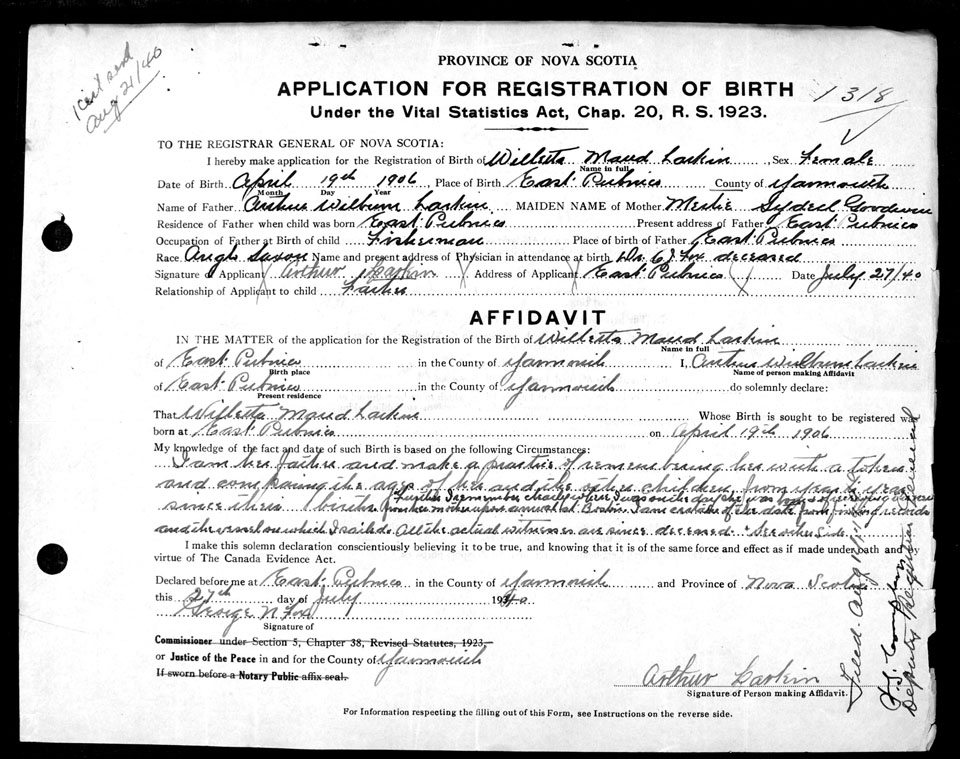 Aug 21/40
PROVINCE OF NOVA SCOTIA
APPLICATION FOR REGISTRATION OF BIRTH
1318
Under the Vital Statistics Act, Chap. 20, R. S. 1923.
TO THE REGISTRAR GENERAL OF NOVA SCOTIA:
I hereby make application for the Registration of Birth of Willetta Maud Larkin, Sex Female
Name in full
Date of Birth April 19th 1906, Place of Birth East Pubnico County of Yarmouth
Month Day Year
Name of Father Arthur Wilburn Larkin MAIDEN NAME of Mother Goodwin
Residence of Father when child was born East Pubnico Present address of Father East Pubnico
Occupation of Father at Birth of child Fisherman Place of birth of Father East Pubnico
Race Anglo Saxon Name and present address of Physician in attendance at birth Dr. C. J. Fox deceased
Signature of Applicant Arthur Larkin Address of Applicant East Pubnico Date July 27/40
Relationship of Applicant to child Father
AFFIDAVIT
IN THE MATTER of the application for the Registration of the Birth of Willetta Maud Larkin
Name in full
of East Pubnico in the County of Yarmouth I, Arthur Wilburn Larkin
Birth place Name of person making Affidavit
of East Pubnico in the County of Yarmouth do solemnly declare:
Present residence
That Willetta Maud Larkin Whose Birth is sought to be registered was
born at East Pubnico on April 19th 1906
My knowledge of the fact and date of such Birth is based on the following Circumstances:
I am her father and make a practice of remembering her with a token
and comparing the ages of her and the other children from year to year
since their births
Further I remember clearly where I was on the day she was born
I am certain of the date from fishing records
and the vessel on which I sailed. All the actual witnesses are since deceased. See other side.
I make this solemn declaration conscientiously believing it to be true, and knowing that it is of the same force and effect as if made under oath and by
virtue of The Canada Evidence Act.
Declared before me at East Pubnico in the County of Yarmouth and Province of Nova Scotia
this 27th day of July 1940
George N Fox
Signature of
Commissioner under Section 5, Chapter 38, Revised Statutes, 1923,
or Justice of the Peace in and for the County of Yarmouth
If sworn before a Notary Public affix seal.
Arthur Larkin
Signature of Person making Affidavit.
For Information respecting the filling out of this Form, see Instructions on the reverse side.
Filed Aug
Deputy Registrar General